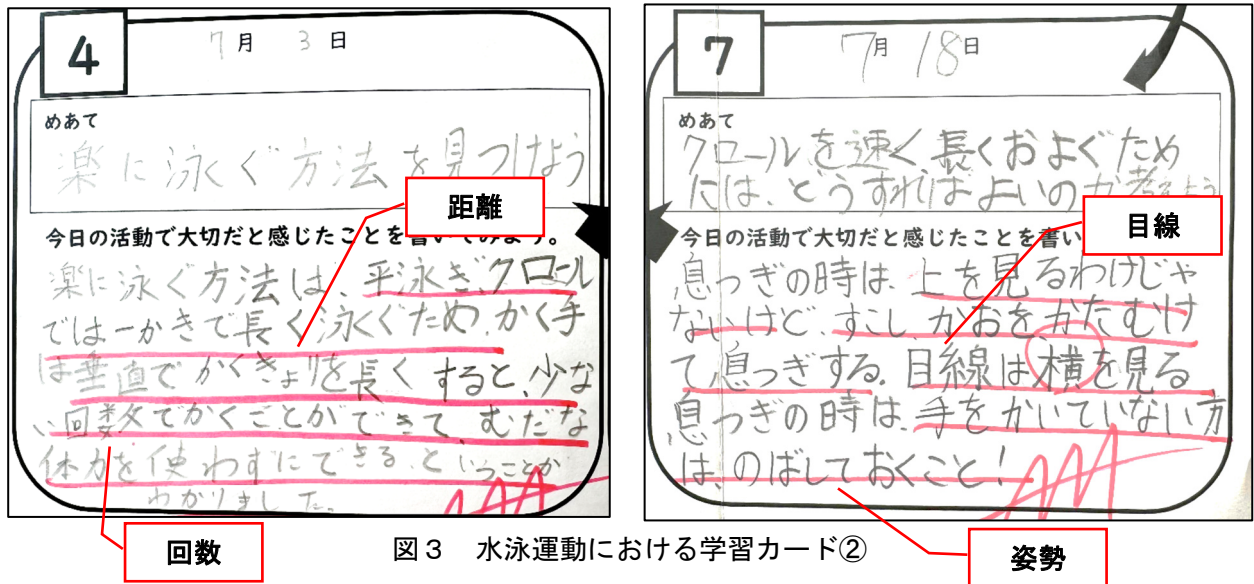 4
7月 3日
めあて
楽に泳ぐ方法を見つけよう
距離
今日の活動で大切だと感じたことを書いてみよう。
楽に泳ぐ方法は、平泳ぎ、クロール
では一かきで長く泳ぐため、かく手
は垂直でかくきょりを長くすると、少な
い回数でかくことができて、むだな
体力を使わずにできる、ということが
わかりました。
回数
7
7月 18日
めあて
クロールを速く長くおよぐため
には、どうすればよいのか考えよう
目線
今日の活動で大切だと感じたことを書い
息つぎの時は、上を見るわけじゃ
ないけど、すこしかおをかたむけ
て息つぎする。目線は横を見る。
息つぎの時は、手をかいていない方
は、のばしておくこと!
姿勢
図3 水泳運動における学習カード②